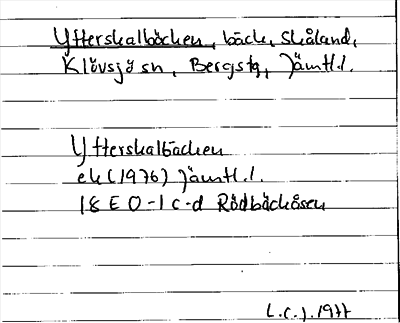 Ytterskalbäcken, bäck, Skåland,
Klövsjö sn, Bergstg, Jämtl.l.
Ytterskalbäcken
ek (1976) Jämtl.l.
18 E 0-1 c-d Rödbäckåsen
L.C.J. 1977